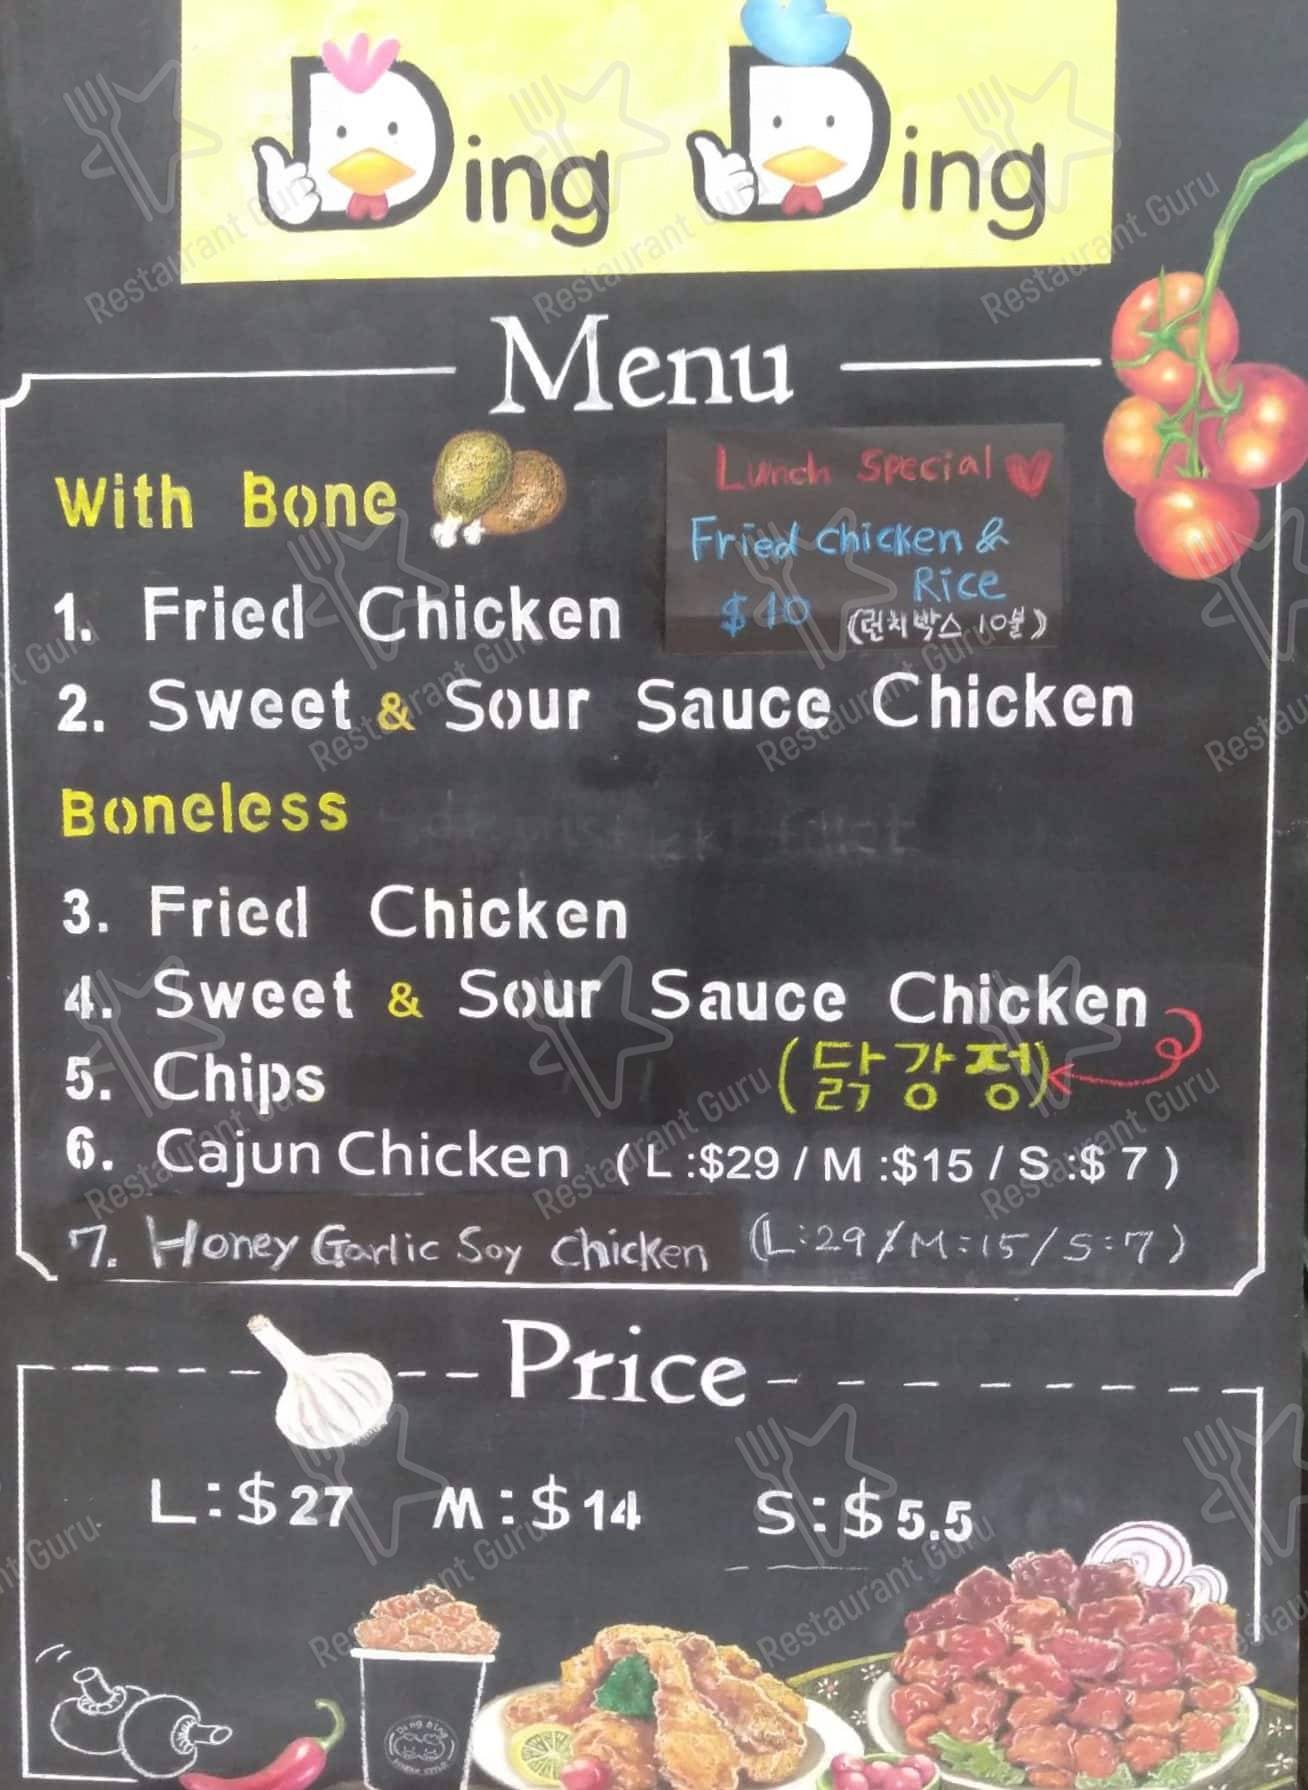 Ding Ding
Menu
With Bone
Lunch Special
Fried Chicken &
Rice
$10 (런치박스 10불)
1. Fried Chicken
2. Sweet & Sour Sauce Chicken
Boneless
3. Fried Chicken
4. Sweet & Sour Sauce Chicken
(닭강정)
5. Chips
6. Cajun Chicken (L :$29 / M :$15 / S :$ 7 )
7. Honey Garlic Soy Chicken (L:29/M:15/S:7)
Price
L:$27 M:$14 S:$5.5
Ding Ding
Restaurant Guru